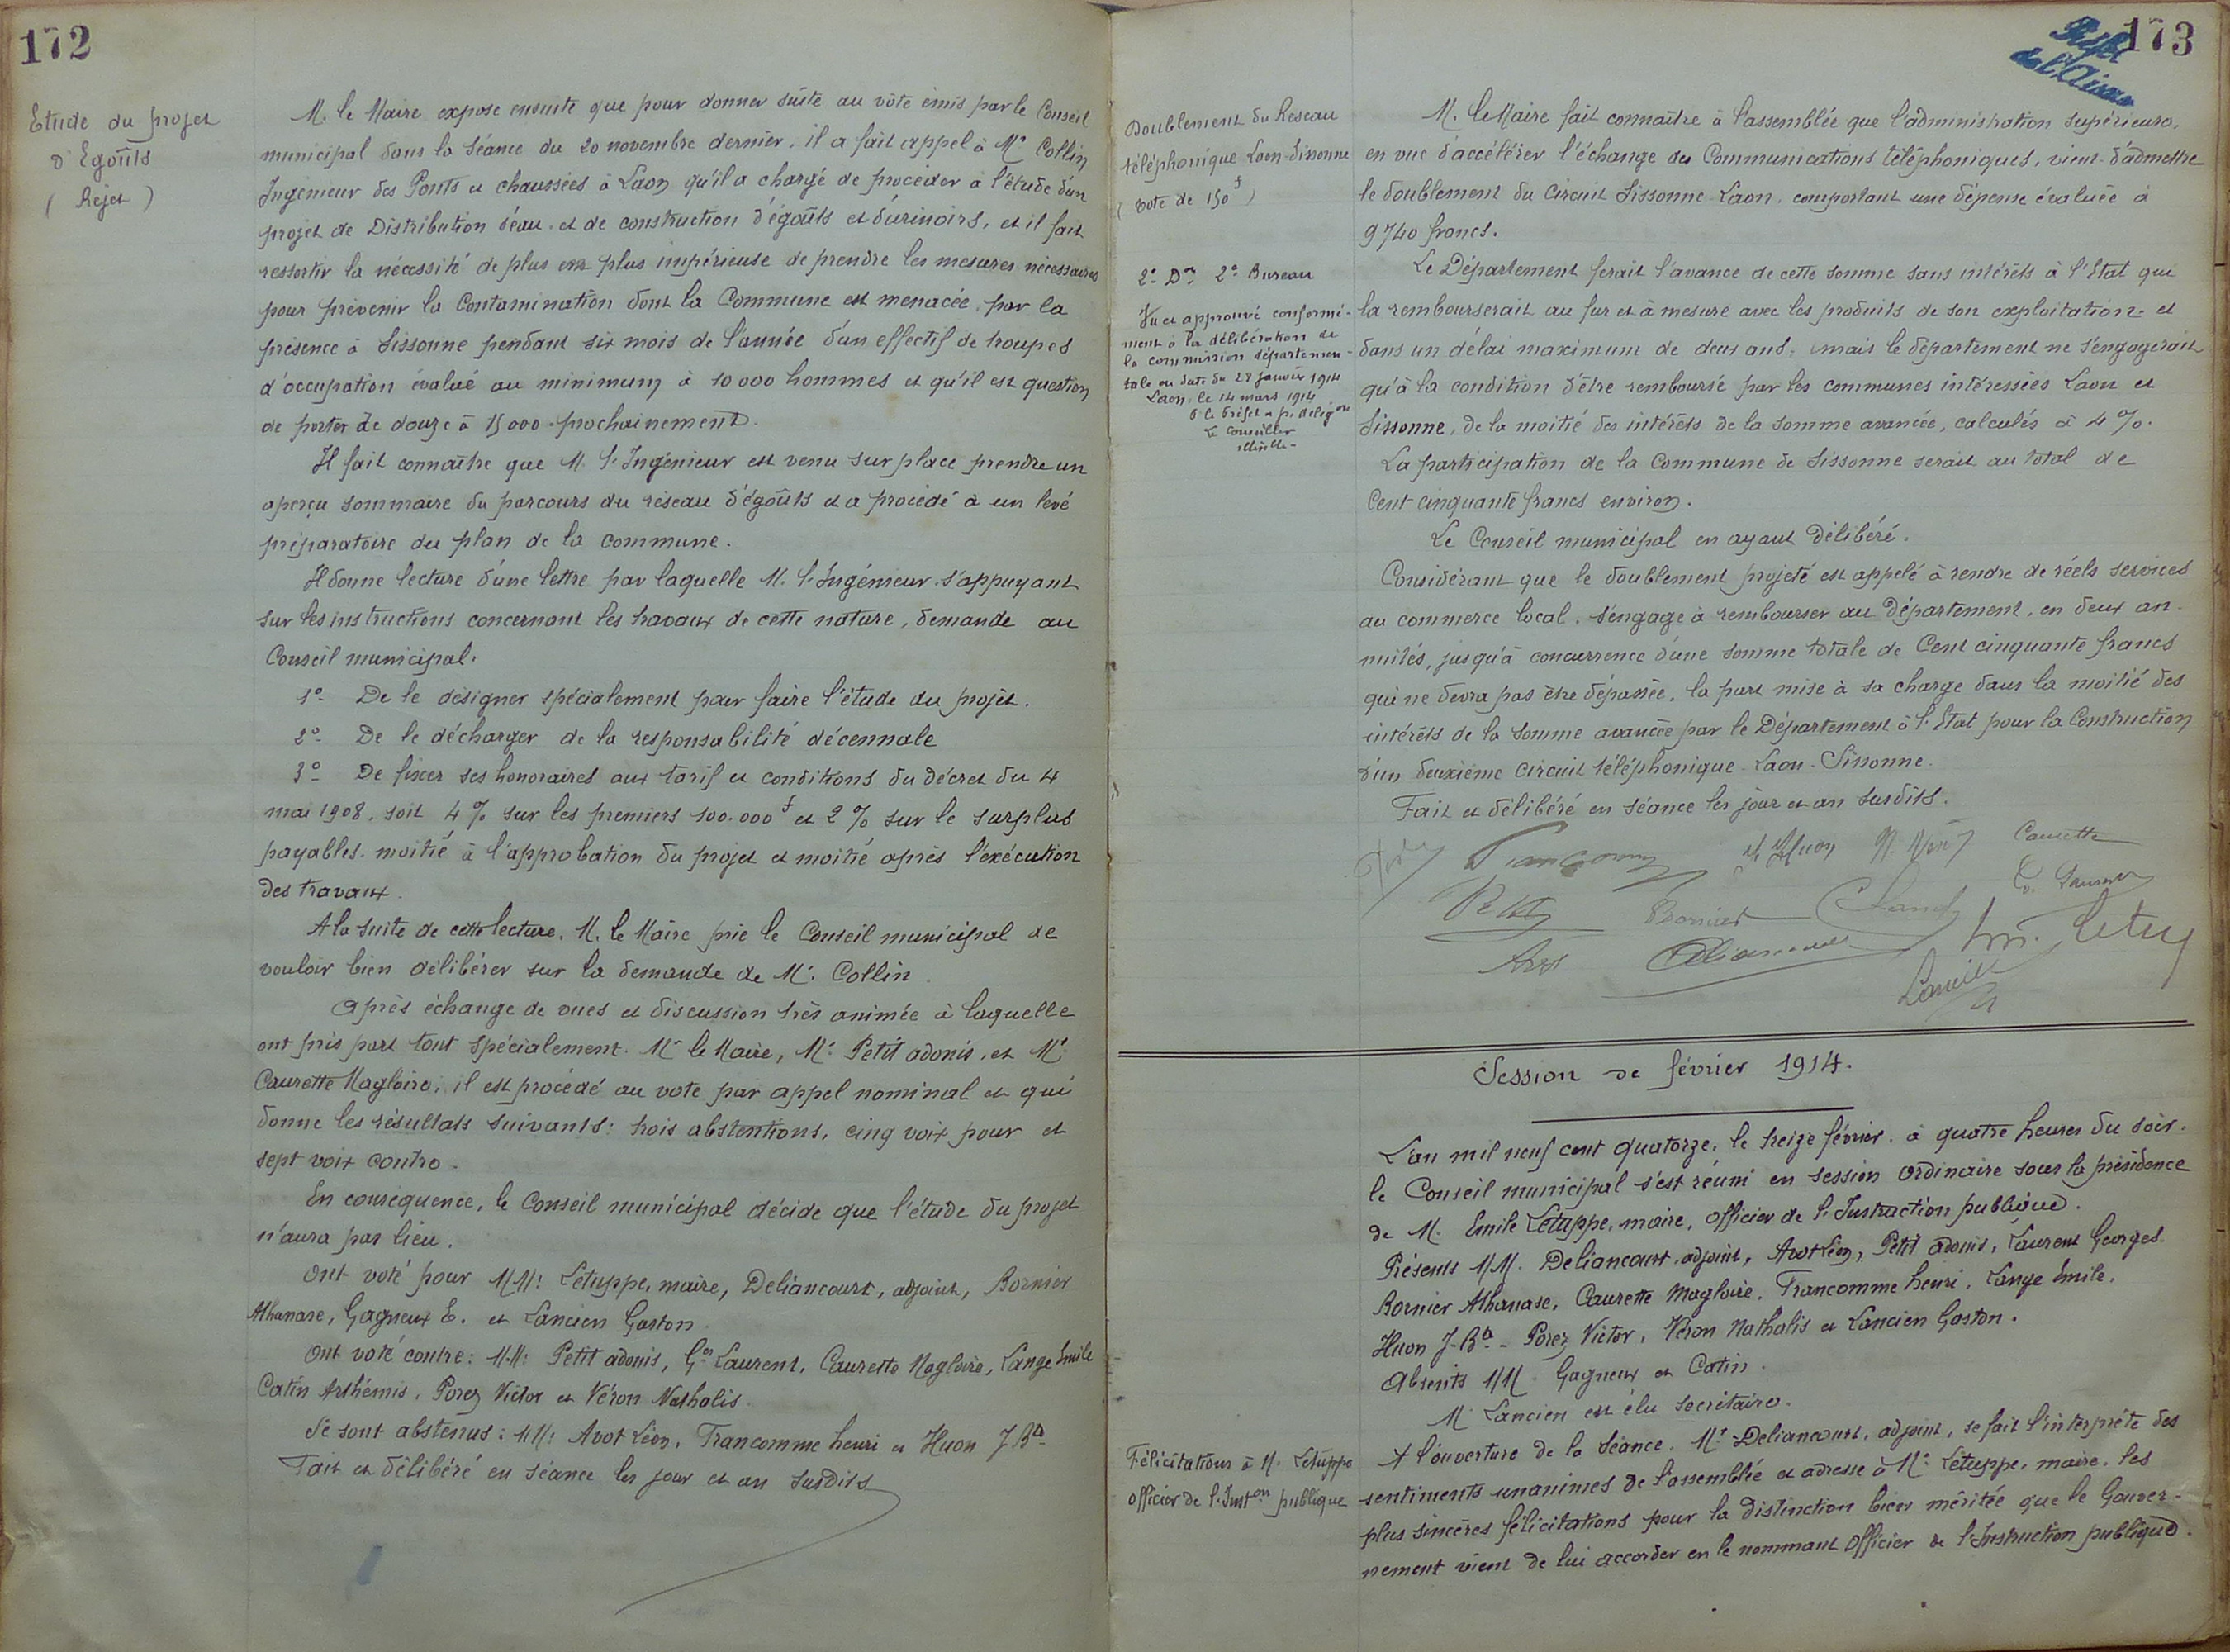 172
Etude du projet
d'Egoûts
( Rejet )
M. le Maire expose ensuite que pour donner suite au vôte émis par le Conseil
municipal dans la Séance du 20 novembre dernier, il a fait appel à Mr Collin
Ingénieur des Ponts et chaussées à Laon qu'il a chargé de procéder à l'étude d'un
projet de Distribution d'eau et de construction d'égoûts et d'urinoirs, et il fait
ressortir la nécessité de plus en plus impérieuse de prendre les mesures nécessaires
pour prévenir la Contamination dont la Commune est menacée, par la
présence à Sissonne pendant six mois de l'année d'un effectif de troupes
d'occupation évalué au minimum à 10000 hommes et qu'il est question
de porter de douze à 15000 prochainement.
Il fait connaître que M. l'Ingénieur est venu sur place prendre un
aperçu sommaire du parcours du réseau d'égoûts et a procédé à un levé
préparatoire du plan de la commune.
Il donne lecture d'une lettre par laquelle M. l'Ingénieur s'appuyant
sur les instructions concernant les travaux de cette nature, demande au
Conseil municipal.
1º- De le désigner spécialement pour faire l'étude du projet.
2º- De le décharger de la responsabilité décennale
3º- De fixer ses honoraires aux tarif et conditions du décret du 4
mai 1908, soit 4% sur les premiers 100.000 f et 2% sur le surplus
payables moitié à l'approbation du projet et moitié après l'exécution
des travaux.
A la suite de cette lecture, M. le Maire prie le Conseil municipal de
vouloir bien délibérer sur la demande de Mr. Collin
Après échange de vues et discussion très animée à laquelle
ont pris part tout spécialement Mr le Maire, Mr. Petit adonis, et Mr.
Caurette Magloire, il est procédé au vote par appel nominal et qui
donne les résultats suivants: trois abstentions, cinq voix pour et
sept voix contre.
En conséquence, le Conseil municipal décide que l'étude du projet
n'aura pas lieu.
Ont voté pour MM: Létuppe, maire, Deliancourt, adjoint, Bornier
Athanase, Gagneux E. et Lancien Gaston
Ont voté contre: MM: Petit adonis, Ges Laurent, Caurette Magloire, Lange Emile
Catin Arthémis, Porez Victor et Véron Nathalis.
Se sont abstenus: MM: Avot Léon, Francomme henri et Huon J Bte
Fait et délibéré en séance les jour et an susdits
173
Préfet
de l'Aisne
Doublement du Réseau
téléphonique Laon-Sissonne
( vote de 150 f )
2e Don 2e Bureau
Vu et approuvé conformé-
ment à la délibération de
la commission départemen-
tale en date du 28 janvier 1914
Laon, le 14 mars 1914
Le Conseiller
M. le Maire fait connaître à l'assemblée que l'administration supérieure,
en vue d'accélérer l'échange des Communications téléphoniques, vient d'admettre
le doublement du Circuit Sissonne-Laon, comportant une dépense évaluée à
9740 francs.
Le Département ferait l'avance de cette somme sans intérêts à l'Etat qui
la rembourserait au fur et à mesure avec les produits de son exploitation et
dans un délai maximum de deux ans, mais le département ne s'engagerait
qu'à la condition d'être remboursé par les communes intéressées Laon et
Sissonne, de la moitié des intérêts de la somme avancée, calculés à 4%.
La participation de la Commune de Sissonne serait au total de
Cent cinquante francs environ.
Le Conseil municipal en ayant Délibéré.
Considérant que le doublement projeté est appelé à rendre de réels services
au commerce local, s'engage à rembourser au Département, en deux an-
nuités, jusqu'à concurrence d'une somme totale de Cent cinquante francs
qui ne devra pas être dépassée, la part mise à sa charge dans la moitié des
intérêts de la somme avancée par le Département à l'Etat pour la Construction
d'un deuxième circuit téléphonique Laon-Sissonne.
Fait et délibéré en séance les jour et an susdits.
Francomme J Huon N. Véron Caurette
Petit Bornier
Avot Deliancourt
Lancien
Session de février 1914.
L'an mil neuf cent quatorze, le treize février à quatre heures du soir,
le Conseil municipal s'est réuni en session ordinaire sous la présidence
de M. Emile Létuppe, maire, Officier de l'Instruction publique.
Présents MM. Deliancourt, adjoint, Avot Léon, Petit adonis, Laurent Georges
Bornier Athanase, Caurette Magloire, Francomme henri, Lange Emile,
Huon J-Bte - Porez Victor, Véron Nathalis et Lancien Gaston.
Absents MM Gagneux et Catin.
M Lancien est élu secrétaire.
Félicitations à M. Létuppe
Officier de l'Inston publique
A l'ouverture de la Séance, Mr Deliancourt, adjoint, se fait l'interprète des
sentiments unanimes de l'assemblée et adresse à Mr. Létuppe, maire, les
plus sincères félicitations pour la distinction bien méritée que le Gouver-
nement vient de lui accorder en le nommant Officier de l'Instruction publique.